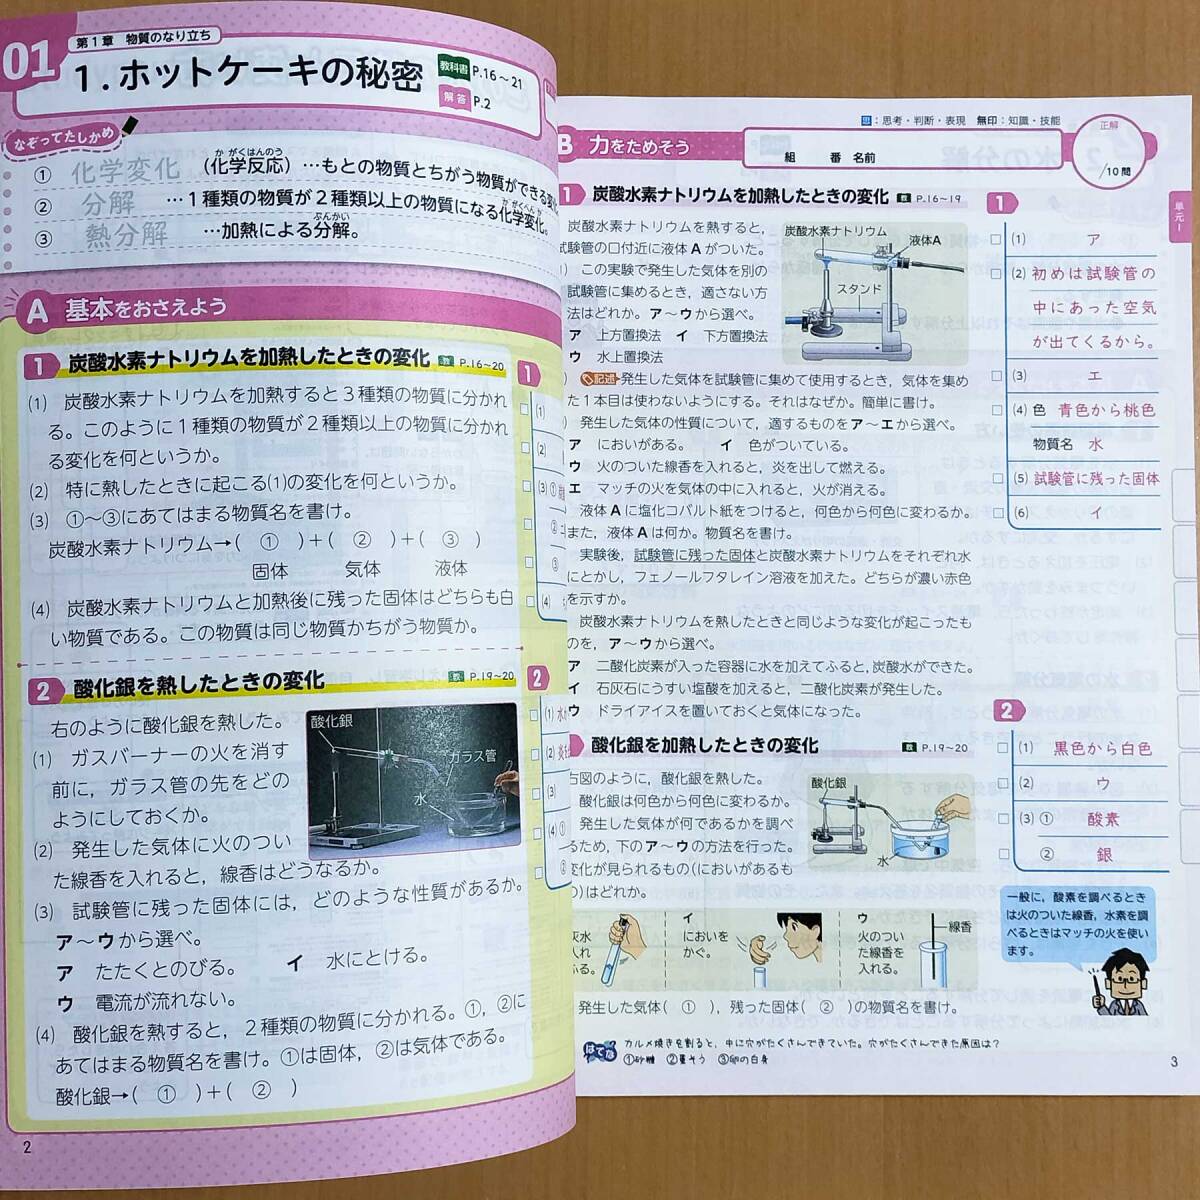 01
第1章 物質のなり立ち
1.ホットケーキの秘密
教科書 P.16~21
解答 P.2
なぞってたしかめ
① 化学変化 (化学反応)…もとの物質とちがう物質ができる変化
② 分解 …1種類の物質が2種類以上の物質になる化学変化。
③ 熱分解 …加熱による分解。
A 基本をおさえよう
1 炭酸水素ナトリウムを加熱したときの変化 教 P.16~20
(1) 炭酸水素ナトリウムを加熱すると3種類の物質に分かれ
る。このように1種類の物質が2種類以上の物質に分かれ
る変化を何というか。
(2) 特に熱したときに起こる(1)の変化を何というか。
(3) ①~③にあてはまる物質名を書け。
炭酸水素ナトリウム→( ① )+( ② )+( ③ )
固体 気体 液体
(4) 炭酸水素ナトリウムと加熱後に残った固体はどちらも白
い物質である。この物質は同じ物質かちがう物質か。
1
(1)
(2)
(3) ①
②
③
(4)
2 酸化銀を熱したときの変化 教 P.19~20
右のように酸化銀を熱した。
(1) ガスバーナーの火を消す
前に，ガラス管の先をどの
ようにしておくか。
(2) 発生した気体に火のつい
た線香を入れると，線香はどうなるか。
(3) 試験管に残った固体には，どのような性質があるか。
ア~ウから選べ。
ア たたくとのびる。 イ 水にとける。
ウ 電流が流れない。
(4) 酸化銀を熱すると，2種類の物質に分かれる。①，②に
あてはまる物質名を書け。①は固体，②は気体である。
酸化銀→( ① )+( ② )
酸化銀
ガラス管
水
2
(1)
(2)
(3)
(4) ①
2
思:思考・判断・表現 無印:知識・技能
B 力をためそう
組 番 名前
正解
/10問
単元1
1 炭酸水素ナトリウムを加熱したときの変化 教 P.16~19
炭酸水素ナトリウムを熱すると，
試験管の口付近に液体Aがついた。
この実験で発生した気体を別の
試験管に集めるとき，適さない方
法はどれか。ア~ウから選べ。
ア 上方置換法 イ 下方置換法
ウ 水上置換法
炭酸水素ナトリウム
液体A
スタンド
記述 発生した気体を試験管に集めて使用するとき，気体を集め
た1本目は使わないようにする。それはなぜか。簡単に書け。
発生した気体の性質について，適するものをア~エから選べ。
ア においがある。 イ 色がついている。
ウ 火のついた線香を入れると，炎を出して燃える。
エ マッチの火を気体の中に入れると，火が消える。
液体Aに塩化コバルト紙をつけると，何色から何色に変わるか。
また，液体Aは何か。物質名を書け。
実験後，試験管に残った固体と炭酸水素ナトリウムをそれぞれ水
にとかし，フェノールフタレイン溶液を加えた。どちらが濃い赤色
を示すか。
炭酸水素ナトリウムを熱したときと同じような変化が起こったも
のを，ア~ウから選べ。
ア 二酸化炭素が入った容器に水を加えてふると，炭酸水ができた。
イ 石灰石にうすい塩酸を加えると，二酸化炭素が発生した。
ウ ドライアイスを置いておくと気体になった。
1
(1) ア
(2) 初めは試験管の
中にあった空気
が出てくるから。
(3) エ
(4) 色 青色から桃色
物質名 水
(5) 試験管に残った固体
(6) イ
酸化銀を加熱したときの変化 教 P.19~20
右図のように，酸化銀を熱した。
酸化銀は何色から何色に変わるか。
発生した気体が何であるかを調べ
るため，下のア~ウの方法を行った。
変化が見られるもの(においがあるもの
の)はどれか。
酸化銀
水
イ
においを
かぐ。
ウ
火のつい
た線香を
入れる。
線香
発生した気体( ① )，残った固体( ② )の物質名を書け。
2
(1) 黒色から白色
(2) ウ
(3) ① 酸素
② 銀
一般に，酸素を調べるとき
は火のついた線香，水素を調
べるときはマッチの火を使い
ます。
はてな
カルメ焼きを割ると，中に穴がたくさんできていた。穴がたくさんできた原因は？
①砂糖 ②重そう ③卵の白身
3